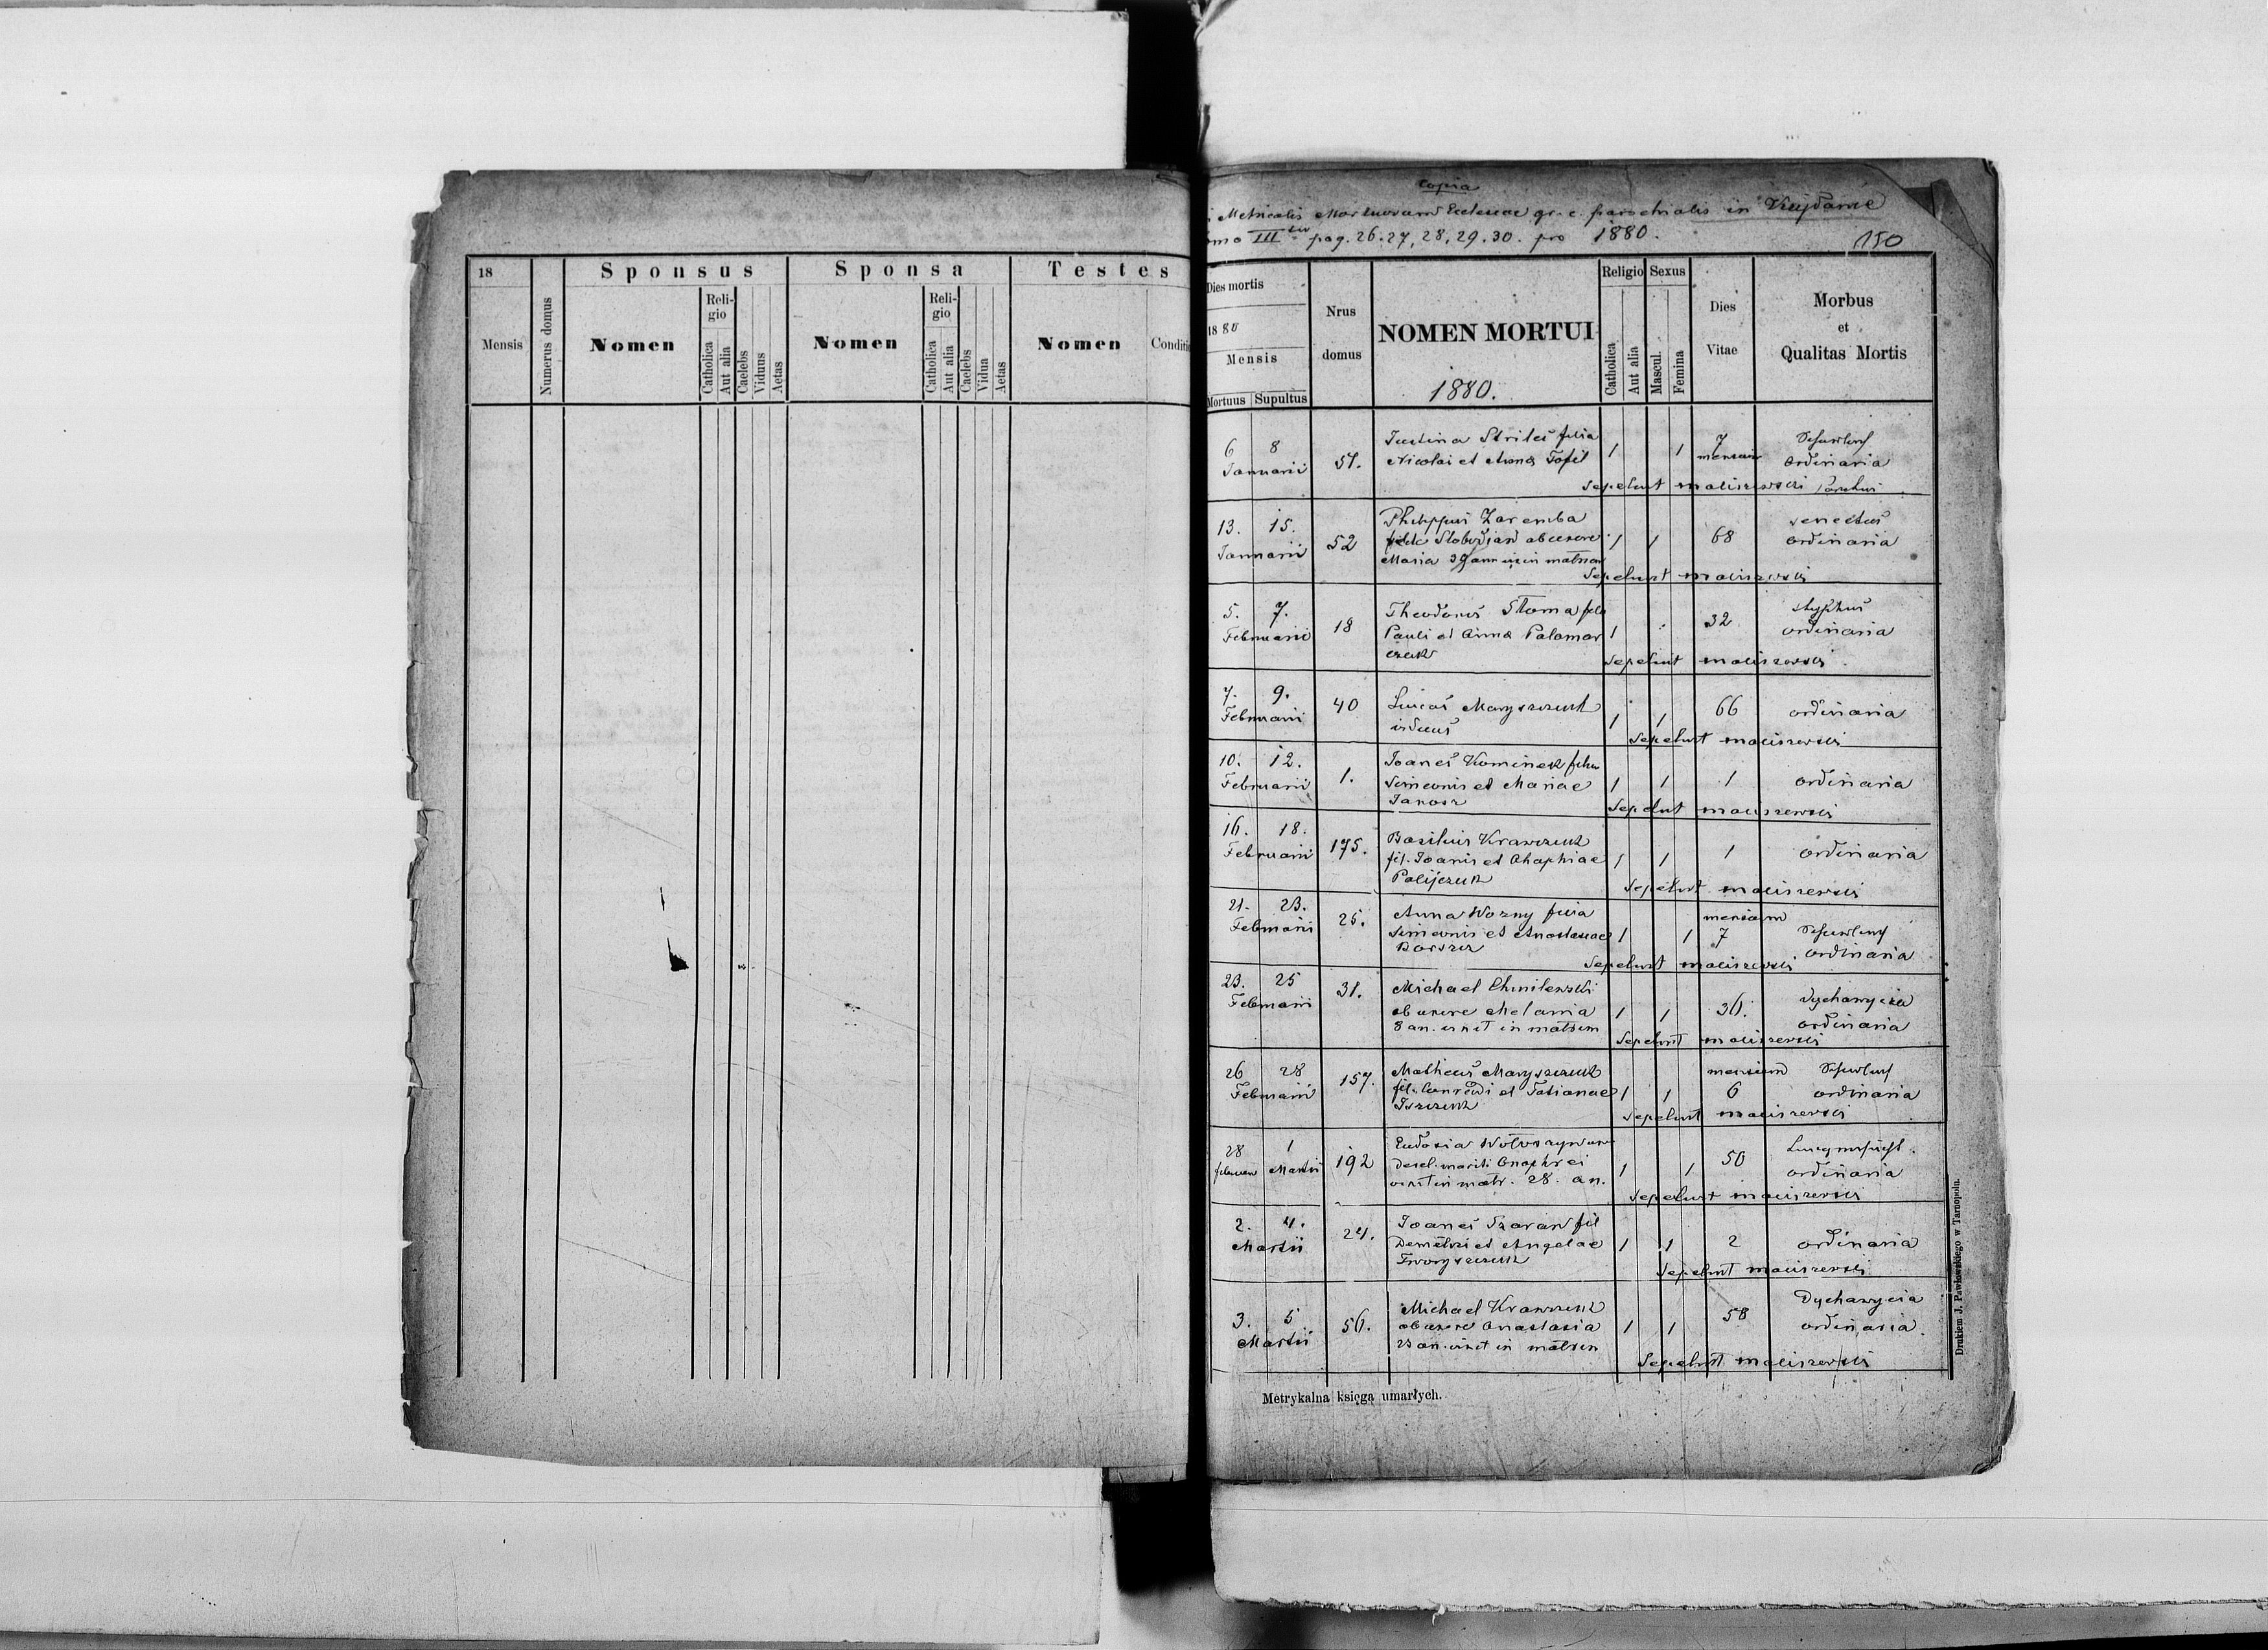 18
Mensis
Numerus domus
Sponsus
Nomen
Reli-
gio
Catholica
Aut alia
Caelebs
Viduus
Aetas
Sponsa
Nomen
Reli-
gio
Catholica
Aut alia
Caelebs
Vidua
Aetas
Testes
Nomen
Conditi
Copia
Metricalis Mortuorum Ecclesiae gr. c. parochialis in Kujdance
III pag. 26. 27, 28, 29. 30. pro 1880.
150
Dies mortis
1880
Mensis
Mortuus Supultus
Nrus
domus
NOMEN MORTUI
1880.
Religio
Catholica
Aut alia
Sexus
Mascul.
Femina
Dies
Vitae
Morbus
et
Qualitas Mortis
6 8
Januarii
51.
Justina Strileć filia
Nicolai et Anna Tofil
1 1
7
mensium
ordinaria
Sepelivit Maliszewski parochus
13. 15.
Januarii
52
Philippus Zaremba
Slobodjan ab uxore
Maria 39 annis in matrim
1 1
68
senectus
ordinaria
Sepelivit Maliszewski
5. 7.
Februarii
18
Theodorus Słoma fili
Pauli et Anna Palamar
czuk
1
32
typhus
ordinaria
Sepelivit Maliszewski
7. 9.
Februarii
40
Lucas Maryszczuk
viduus
1 1
66
ordinaria
Sepelivit Maliszewski
10. 12.
Februarii
1.
Joanes Kominek filius
Simeonis et Mariae
Janosz
1 1
1
ordinaria
Sepelivit Maliszewski
16. 18.
Februarii
175.
Basilius Krawczuk
fil. Joanis et Ahaphiae
Palijczuk
1 1
1
ordinaria
Sepelivit Maliszewski
21. 23.
Februarii
25.
Anna Wozny filia
Simeonis et Anastasiae
Borszcz
1 1
mensium
7
ordinaria
Sepelivit Maliszewski
23. 25
Februarii
31.
Michael Chmilewski
ab uxore Melania
8 an. vixit in matrim
1 1
36.
Dychawycia
ordinaria
Sepelivit Maliszewski
26 28
Februarii
157.
Matheus Maryszczuk
fil. Conradi et Tatianae
1 1
mensium
6
ordinaria
Sepelivit Maliszewski
28 1
februarii Martii
192
Eudoxia
mariti Onophrei
vixit in matr. 28. an.
1 1
50
ordinaria
Sepelivit Maliszewski
2. 4.
Martii
24.
Joanes Szaran fil
Demetrii et Angelae
1 1
2
ordinaria
Sepelivit Maliszewski
3. 5
Martii
56.
Michael Krawczuk
ab uxore Anastasia
23 an. vixit in matrim
1 1
58
Dychawycia
ordinaria
Sepelivit Maliszewski
Metrykalna księga umarłych.
Drukiem J. Pawłowskiego w Tarnopolu.